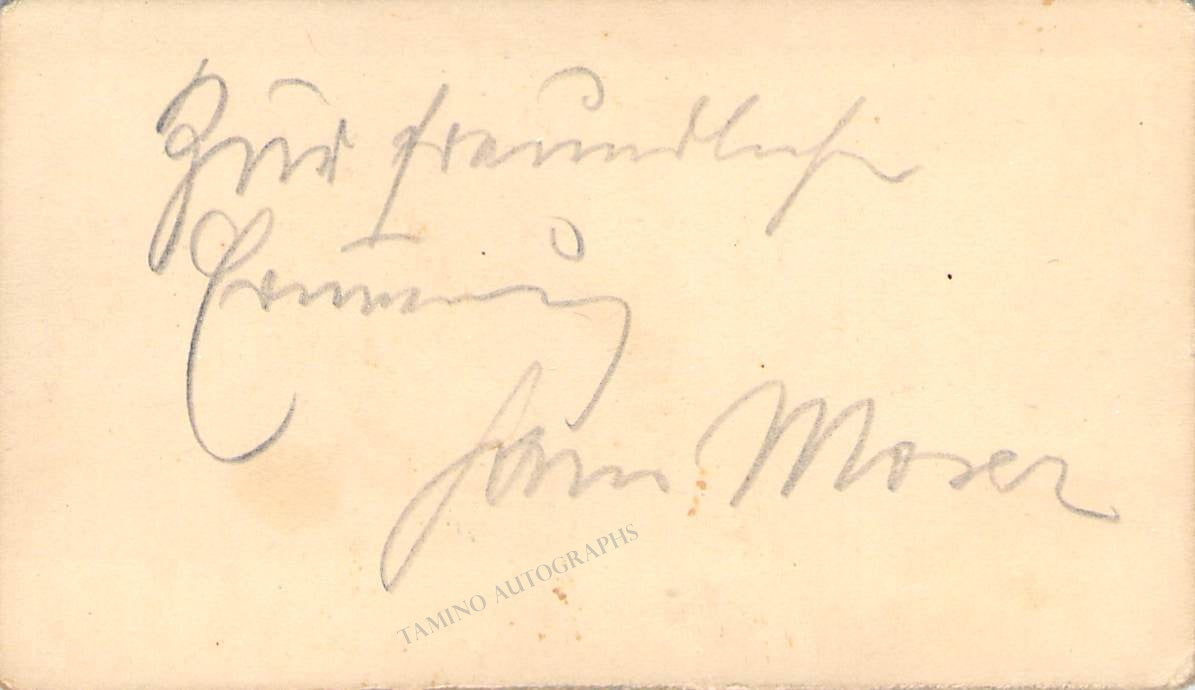 Zur freundlichen
Erinnerung
Hans Moser
TAMINO AUTOGRAPHS